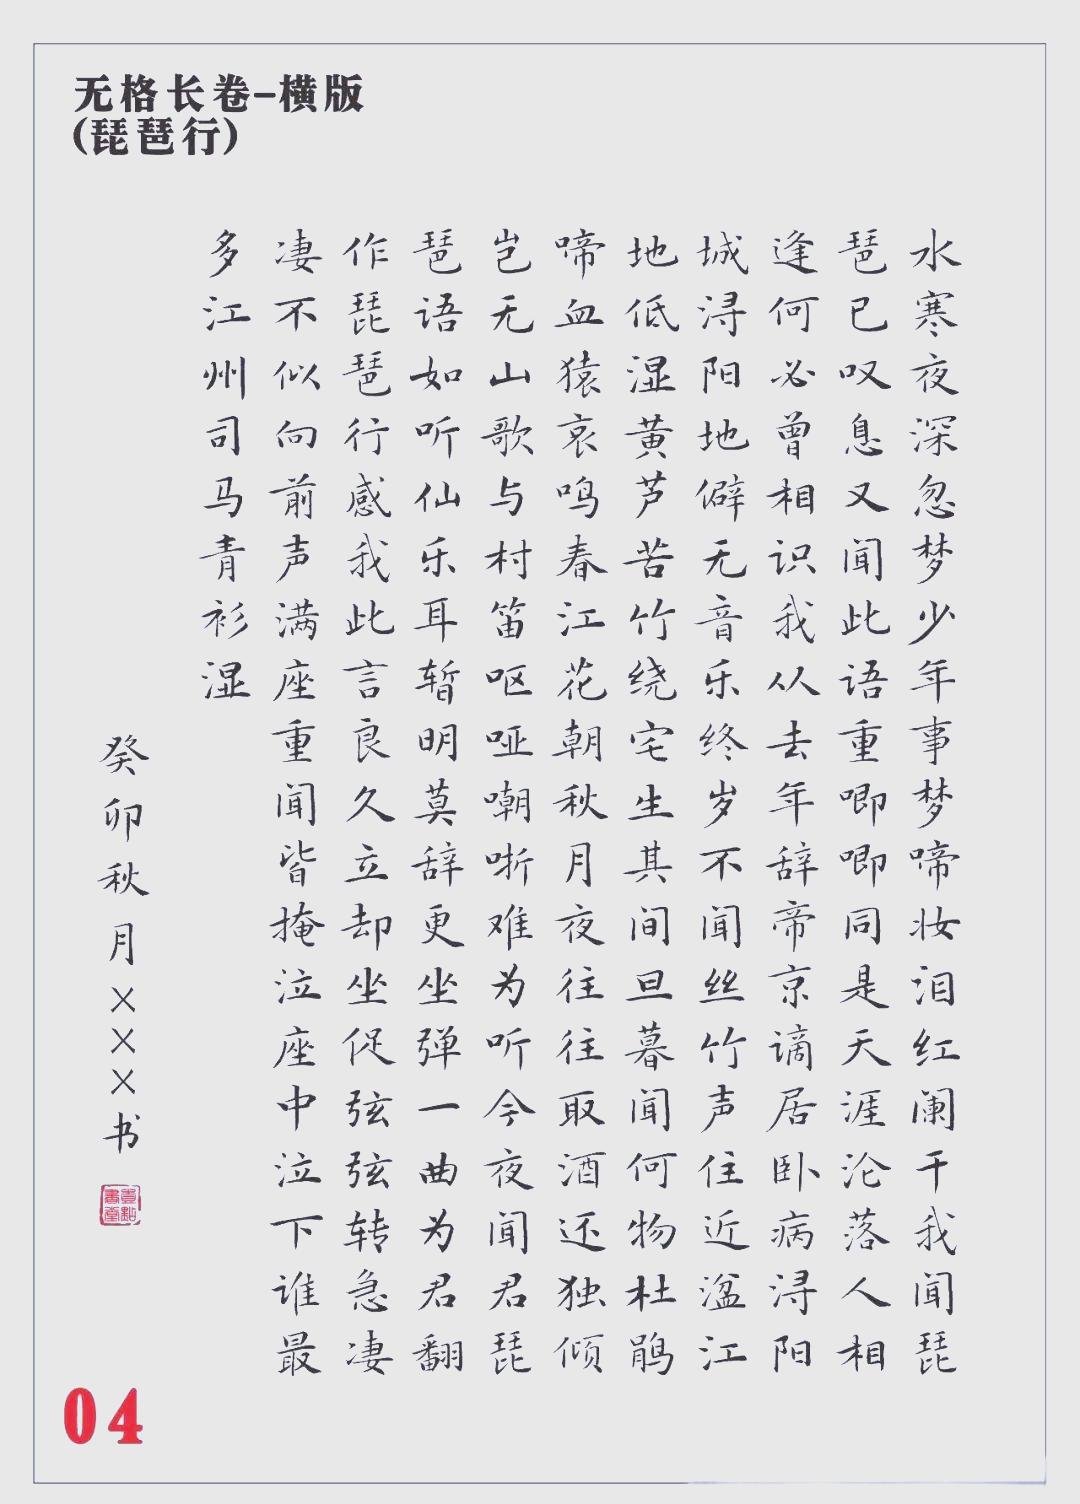 无格长卷-横版
(琵琶行)
水寒夜深忽梦少年事梦啼妆泪红阑干我闻琵
琶已叹息又闻此语重唧唧同是天涯沦落人相
逢何必曾相识我从去年辞帝京谪居卧病浔阳
城浔阳地僻无音乐终岁不闻丝竹声住近湓江
地低湿黄芦苦竹绕宅生其间旦暮闻何物杜鹃
啼血猿哀鸣春江花朝秋月夜往往取酒还独倾
岂无山歌与村笛呕哑嘲哳难为听今夜闻君琵
琶语如听仙乐耳暂明莫辞更坐弹一曲为君翻
作琵琶行感我此言良久立却坐促弦弦转急凄
凄不似向前声满座重闻皆掩泣座中泣下谁最
多江州司马青衫湿
癸卯秋月×××书
04